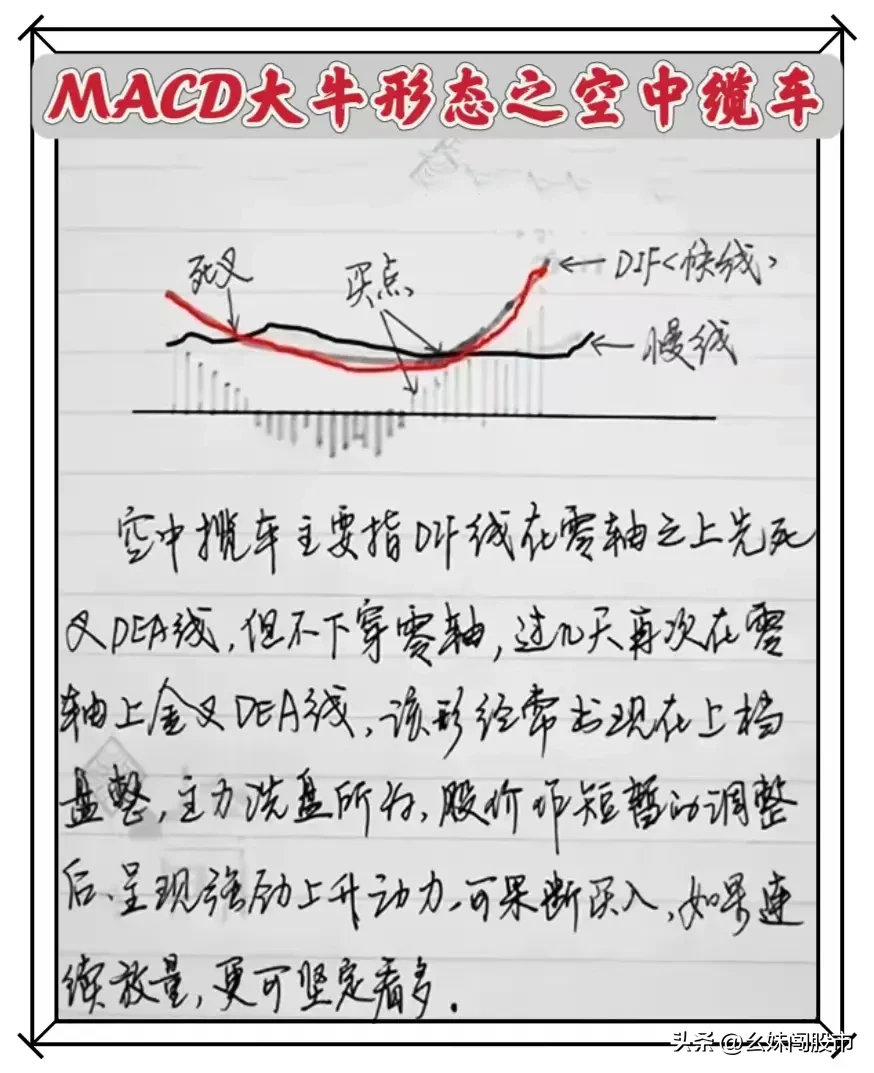 MACD大牛形态之空中缆车
死叉
买点
DIF<快线>
慢线
空中揽车主要指DIF线在零轴之上先死
叉DEA线,但不下穿零轴,过几天再次在零
轴上金叉DEA线,该形经常出现在上档
盘整,主力洗盘所为,股价作短暂的调整
后、呈现强劲上升动力,可果断买入,如果连
续放量,更可坚定看多.
头条 @幺妹闯股市